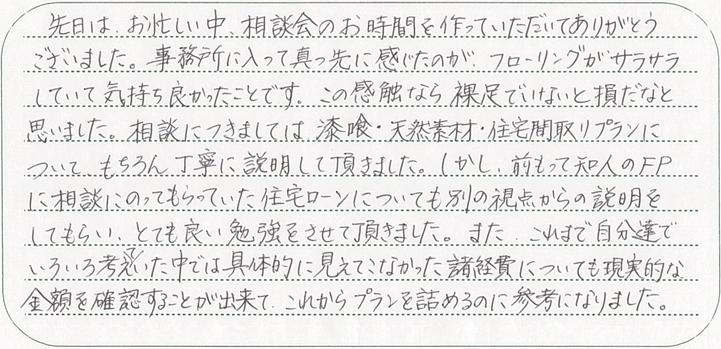 先日は、お忙しい中、相談会のお時間を作っていただいてありがとう
ございました。事務所に入って真っ先に感じたのが、フローリングがサラサラ
していて気持ち良かったことです。この感触なら裸足でいないと損だなと
思いました。相談につきましては漆喰・天然素材・住宅間取りプランに
ついて、もちろん丁寧に説明して頂きました。しかし、前もって知人のFP
に相談にのってもらっていた住宅ローンについても別の視点からの説明を
してもらい、とても良い勉強をさせて頂きました。また、これまで自分達で
いろいろ考えていた中では具体的に見えてこなかった諸経費についても現実的な
金額を確認することが出来て、これからプランを詰めるのに参考になりました。